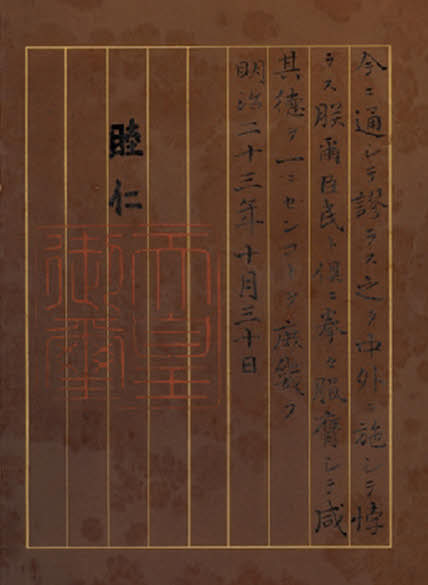 今ニ通シテ謬ラス之ヲ中外ニ施シテ悖
ラス朕爾臣民ト倶ニ拳々服膺シテ咸
其徳ヲ一ニセンコトヲ庶幾フ
明治二十三年十月三十日
睦仁
天皇
御璽